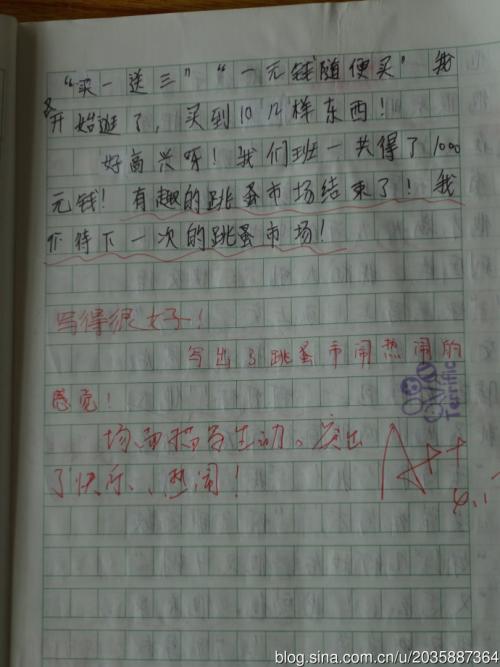 “买一送三”“一元钱随便买”我
又开始逛了，买到10几样东西！
好高兴呀！我们班一共得了1000
元钱！有趣的跳蚤市场结束了！我
价待下一次的跳蚤市场！
写得很好！
写出了跳蚤市闹热闹的
感觉！
场面描写生动、突出
了快乐、热闹！
A++
Terrific
blog.sina.com.cn/u/2035887364